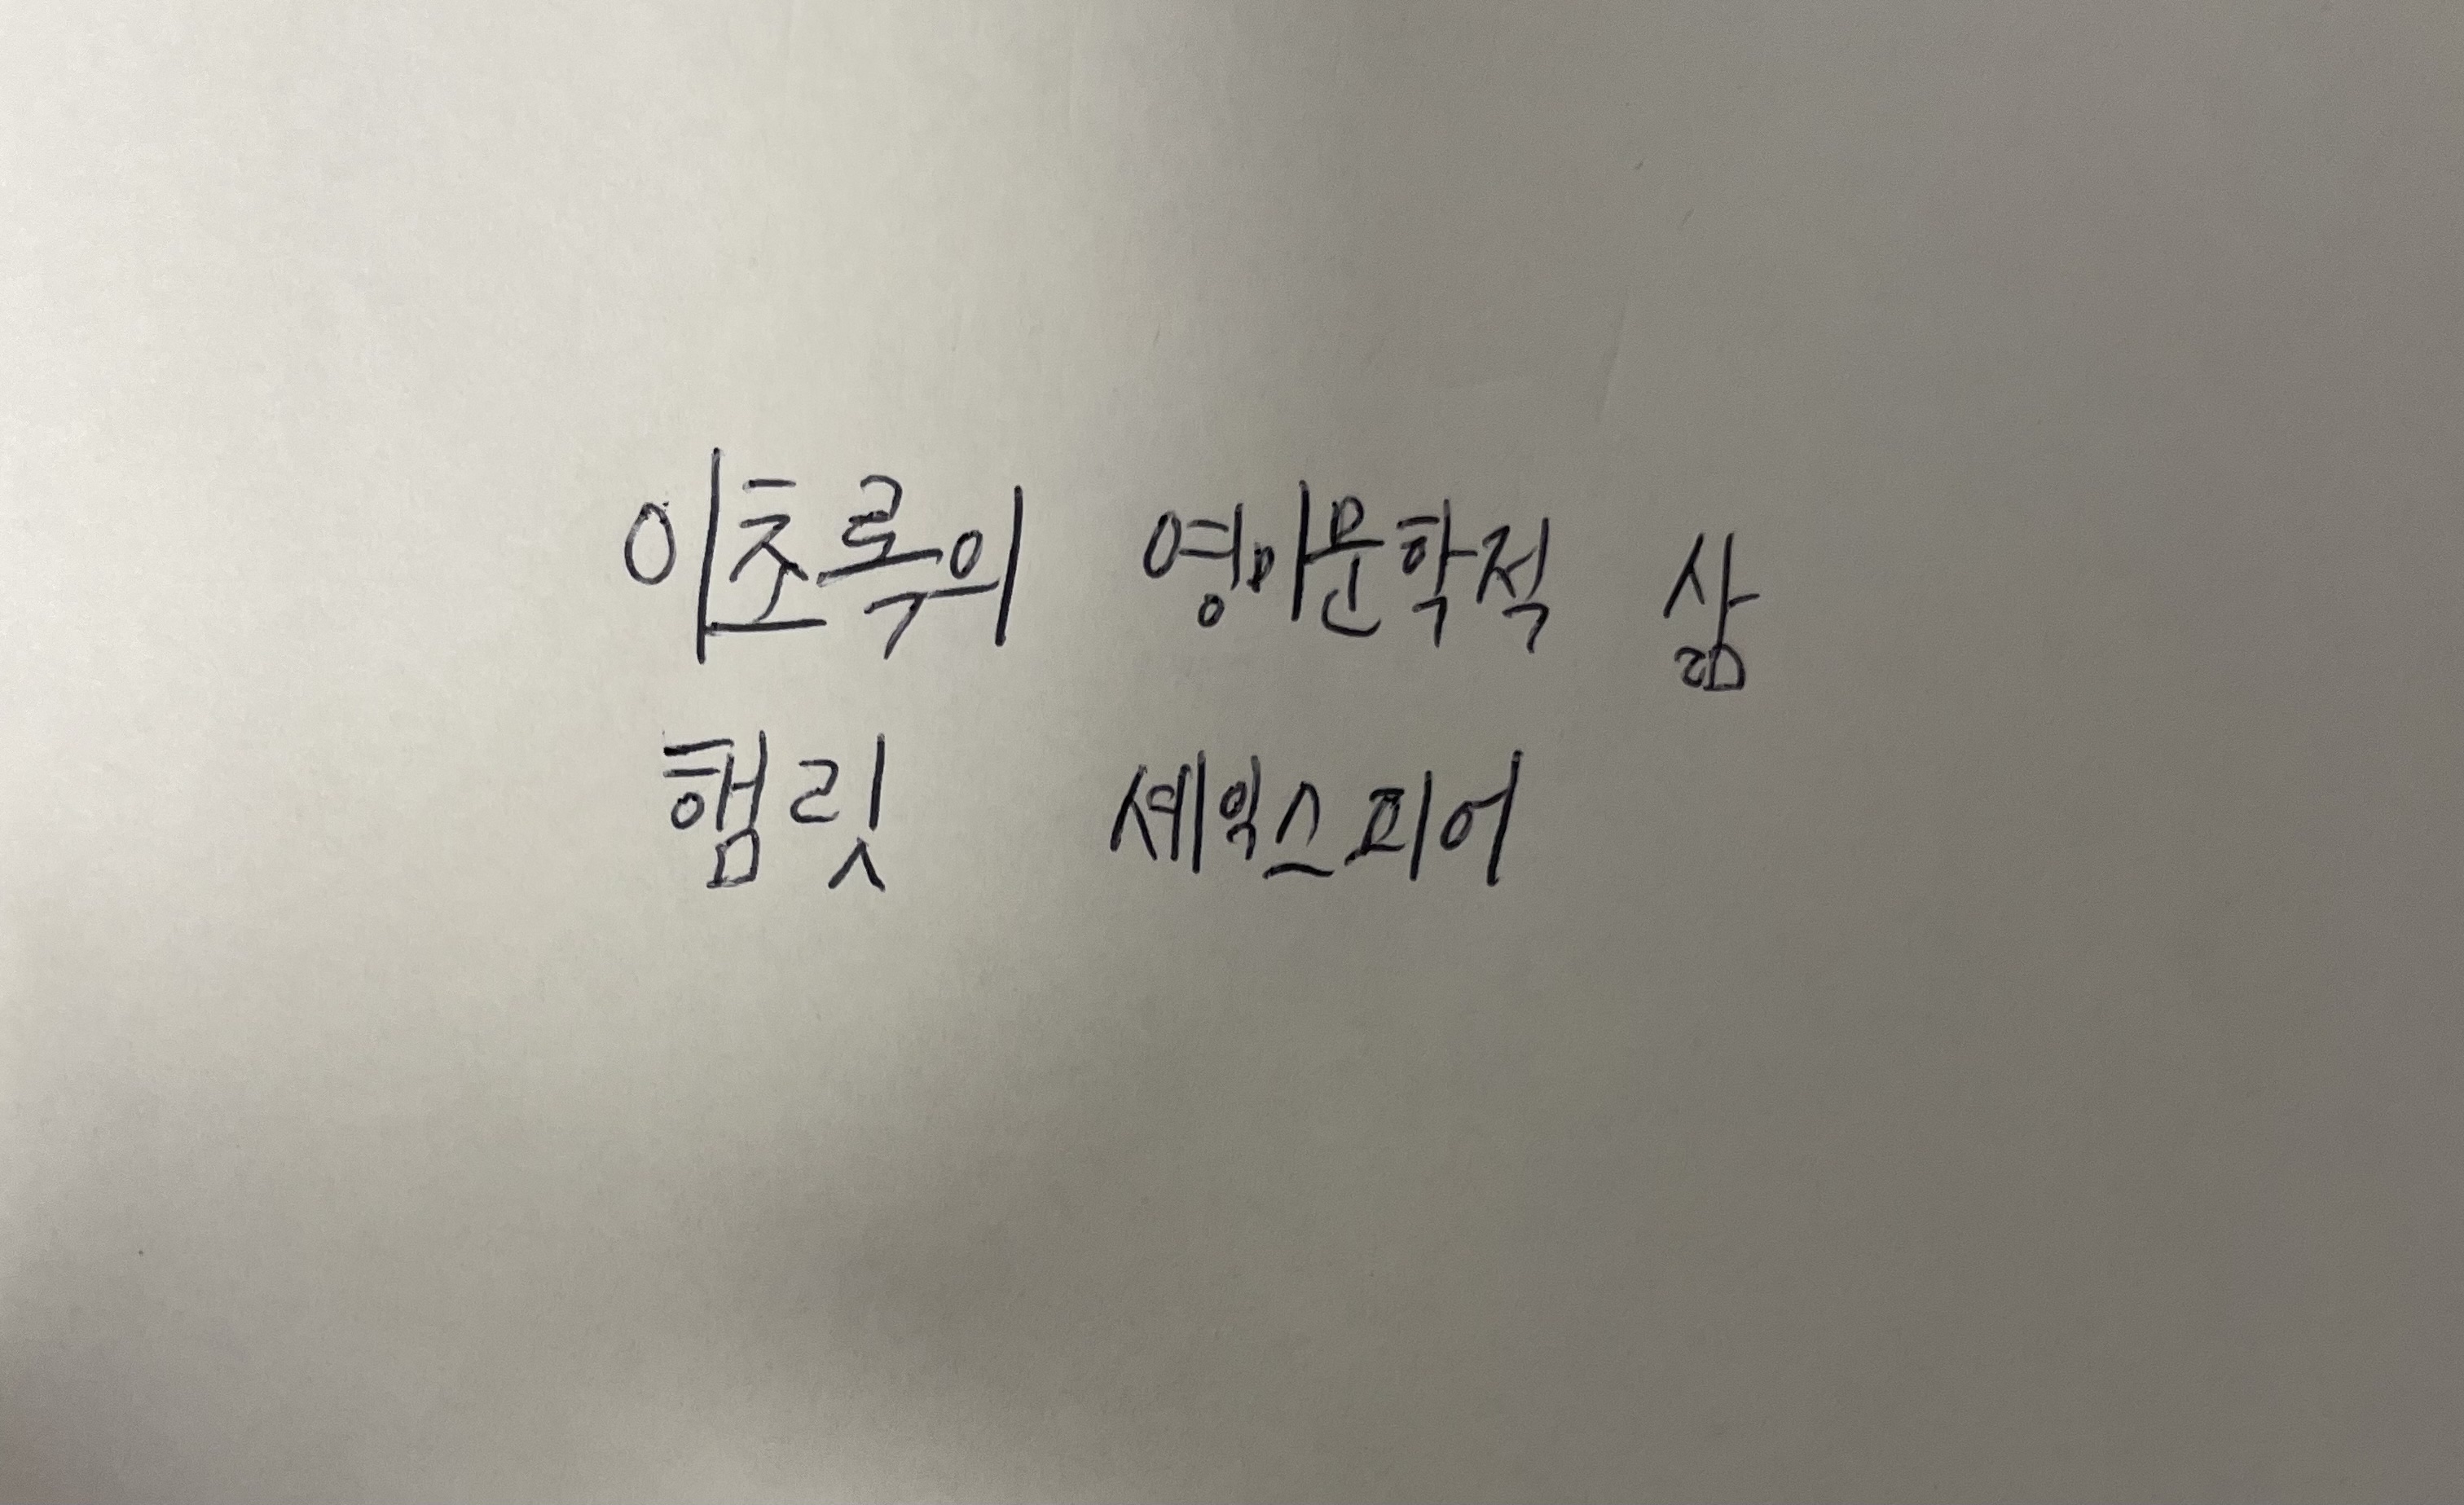 이초록의 영미문학적 삶
햄릿 셰익스피어